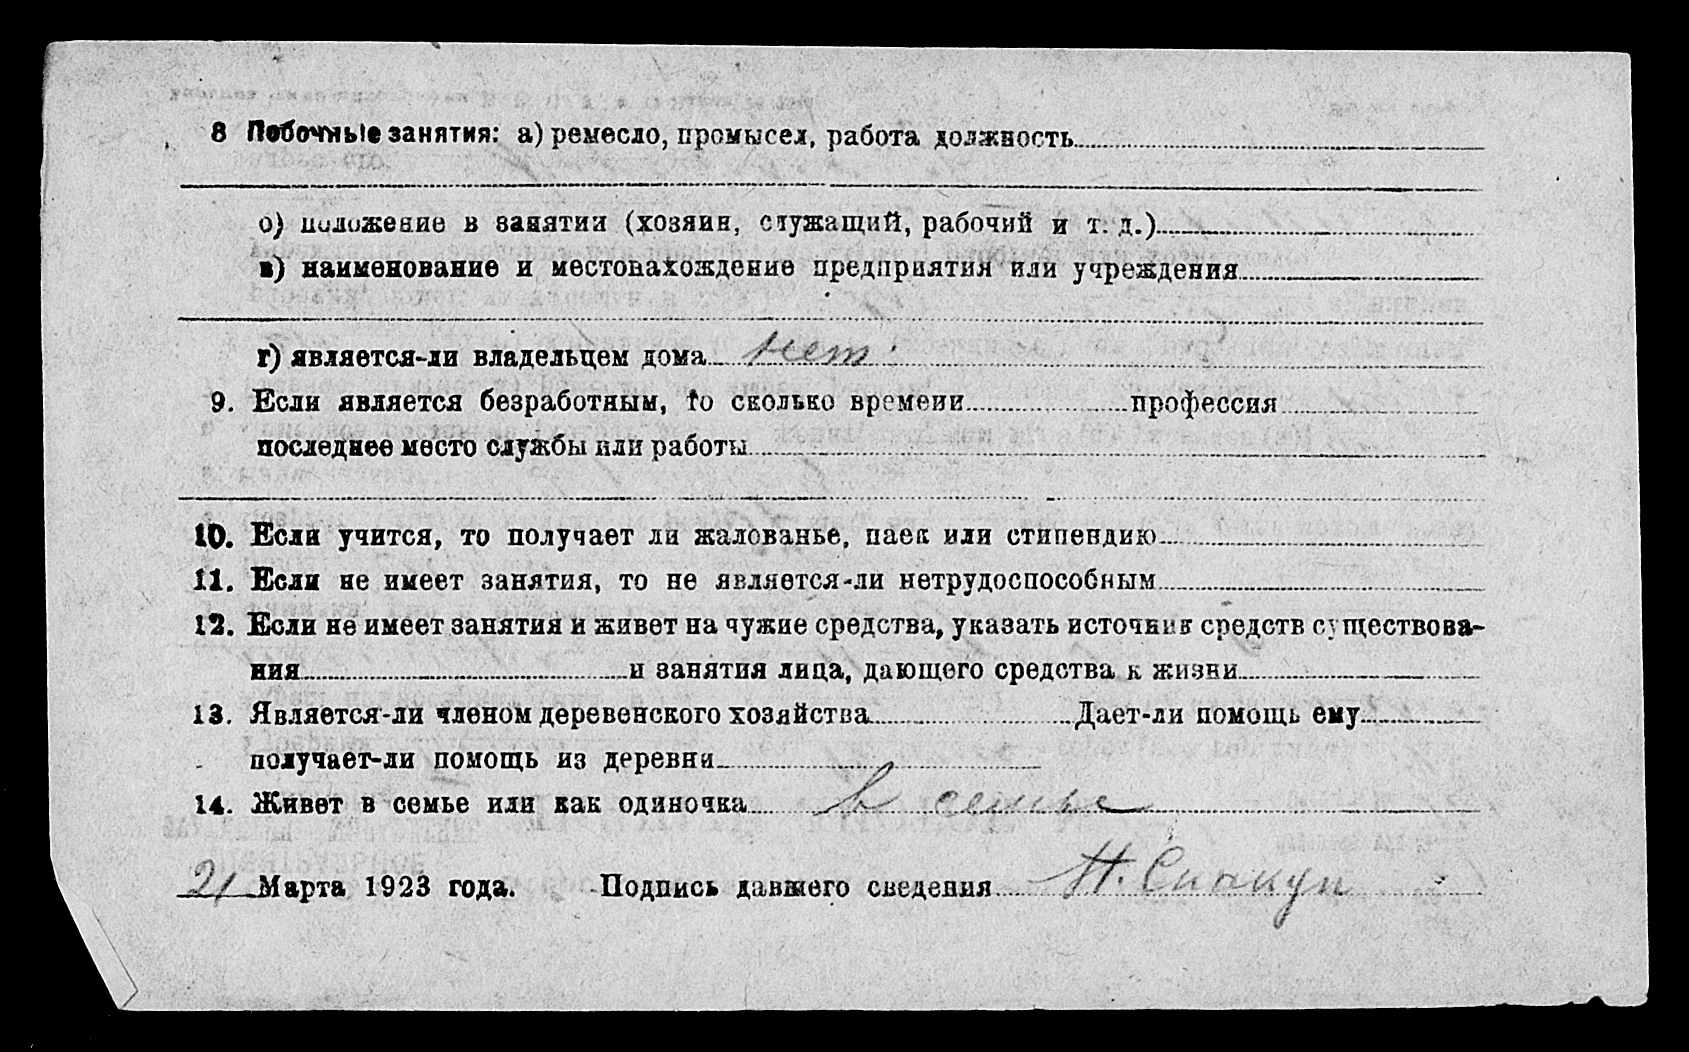 8 Побочные занятия: а) ремесло, промысел, работа должность
б) положение в занятии (хозяин, служащий, рабочий и т. д.)
в) наименование и местонахождение предприятия или учреждения
г) является-ли владельцем дома нет
9. Если является безработным, то сколько времени профессия
последнее место службы или работы
10. Если учится, то получает ли жалованье, паек или стипендию
11. Если не имеет занятия, то не является-ли нетрудоспособным
12. Если не имеет занятия и живет на чужие средства, указать источник средств существова-
ния и занятия лица, дающего средства к жизни
13. Является-ли членом деревенского хозяйства Дает-ли помощь ему
получает-ли помощь из деревни
14. Живет в семье или как одиночка в семье
21 Марта 1923 года. Подпись давшего сведения Н. Скакун